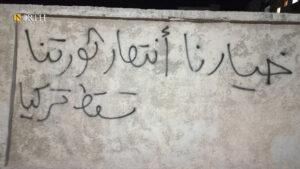 NORTH
خيارنا أنتصار ثورتنا
تسقط تركيا